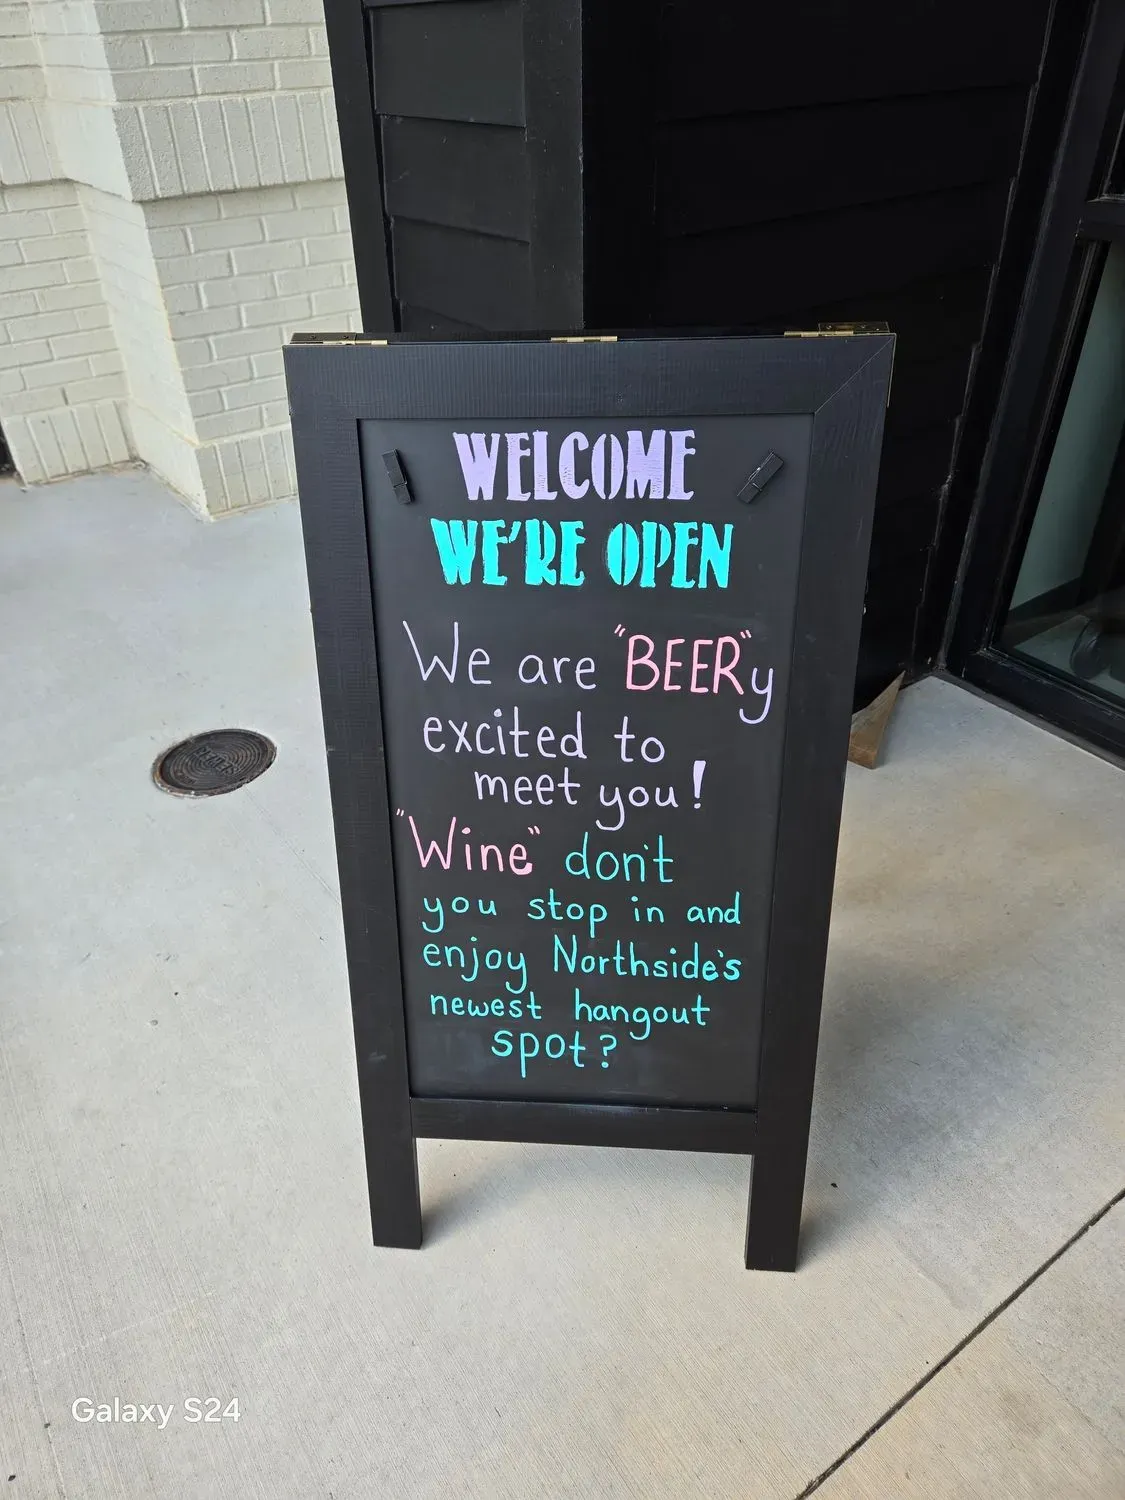 WELCOME
WE'RE OPEN
We are "BEER"y
excited to
meet you!
"Wine" don't
you stop in and
enjoy Northside's
newest hangout
spot?
Galaxy S24